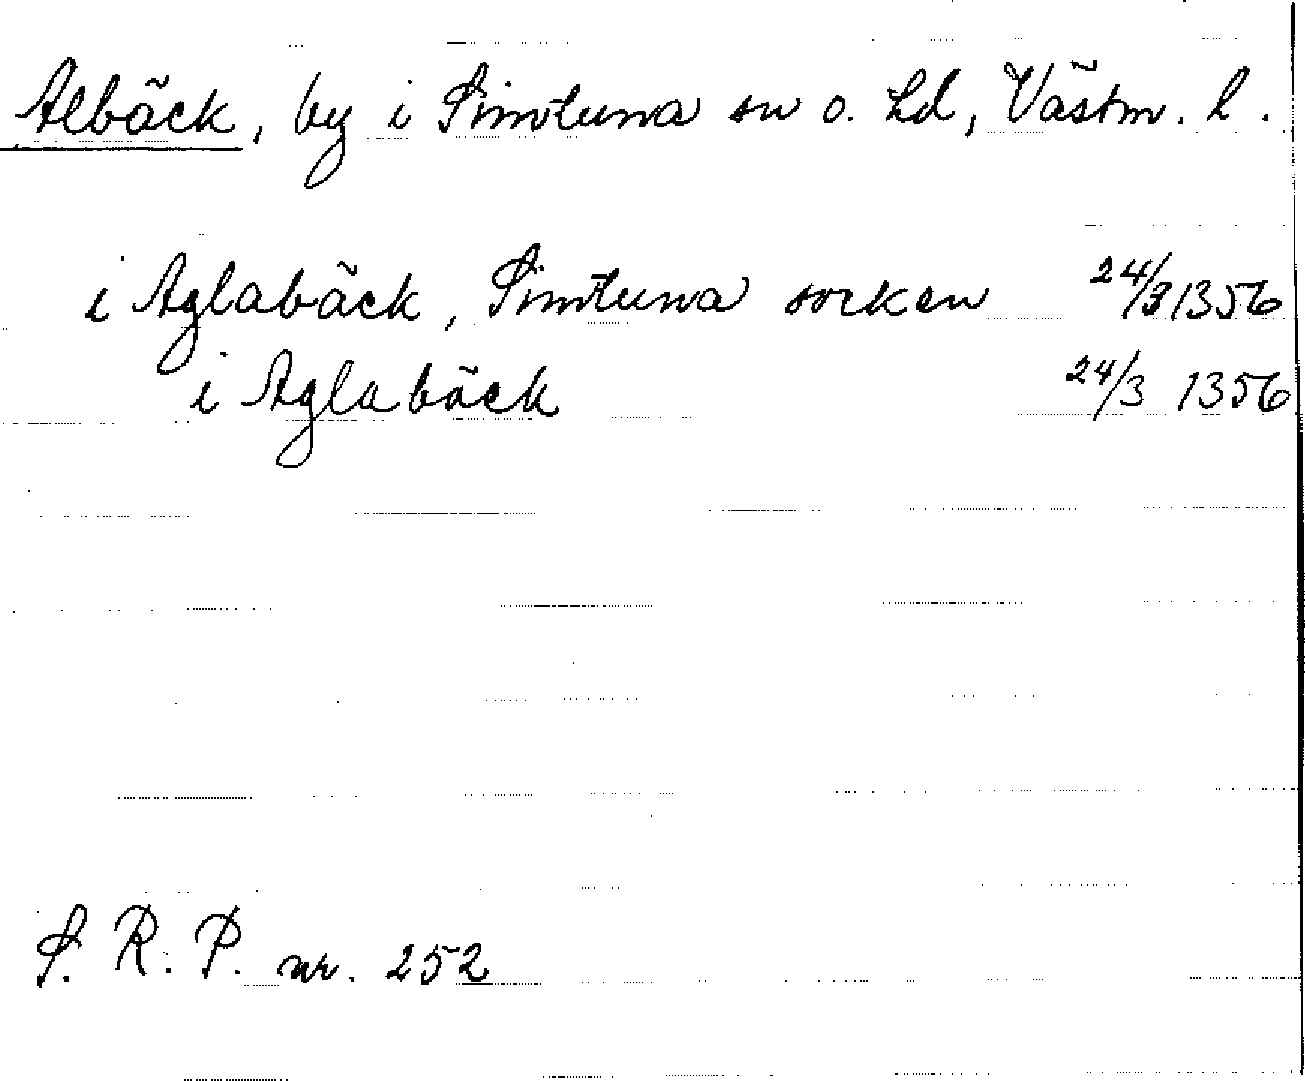 Albäck, by i Simtuna sn o. hd, Västm. l.
i Aglabäck, Simtuna socken 24/3 1356
i Aglabäck 24/3 1356
S. R. P. nr. 252